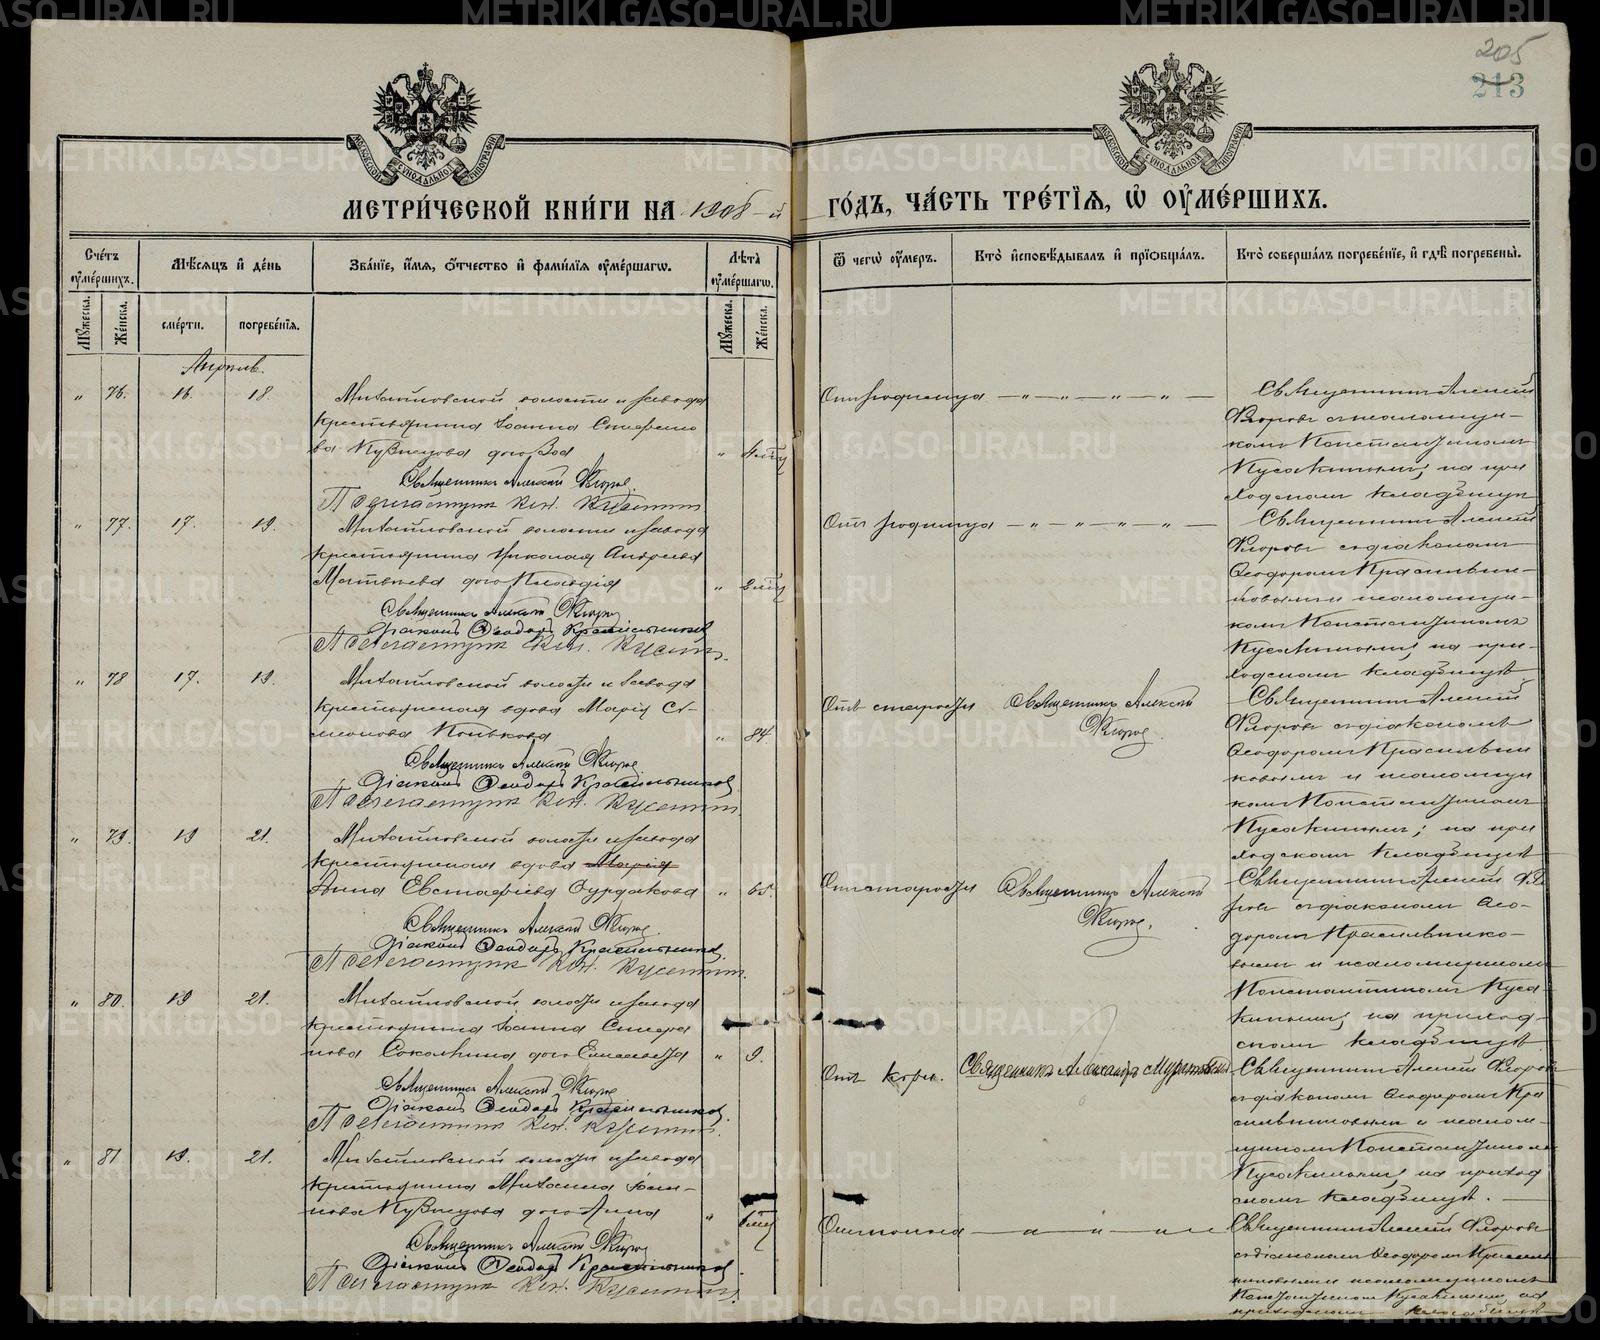 205
213
МОСКОВСКОЙ СѴНОДАЛЬНОЙ ТИПОГРАФІИ
МОСКОВСКОЙ СѴНОДАЛЬНОЙ ТИПОГРАФІИ
МЕТРИ́ЧЕСКОЙ КНИ́ГИ НА 1908-й ГО́ДЪ, ЧА́СТЬ ТРЕ́ТЇѦ, Ѽ ОУ҆МЕ́РШИХЪ.
Сче́тъ оу҆ме́ршихъ.
Мꙋ́жеска.
Же́нска.
Мѣ́сѧцъ и҆ де́нь
сме́рти.
погребе́нїѧ.
Зва́нїе, и҆́мѧ, ѻ҆́тчество и҆ фами́лїѧ оу҆ме́ршагѡ.
Лѣ́та оу҆ме́ршагѡ.
Мꙋ́жеска.
Же́нска.
Ѿ чегѡ̀ оу҆́меръ.
Кто̀ и҆сповѣ́дывалъ и҆ прїѡбща́лъ.
Кто̀ соверша́лъ погребе́нїе, и҆ гдѣ̀ погребены̀.
Апрѣль.
„ 76. 16. 18. Михайловской волости и завода
крестьянина Іоанна Стефано
ва Кузнецова дочь Зоя
Священникъ Алексій Флоровъ
Псаломщикъ Кон. Кусакинъ
Отъ родимца — „ — „ — „ — „ —
Священникъ Алексій
Флоровъ съ псаломщи-
комъ Константиномъ
Кусакинымъ, на при
ходскомъ кладбищѣ
„ 77. 17. 19. Михайловской волости и завода
крестьянина Николая Андреева
Матвѣева дочь Клавдія
Священникъ Алексій Флоровъ
Діаконъ Ѳеодоръ Красильниковъ
Псаломщикъ Кон. Кусакинъ.
Отъ родимца — „ — „ — „ — „ —
Священникъ Алексій
Флоровъ съ діакономъ
Ѳеодоромъ Красильни-
ковымъ и псаломщи-
комъ Константиномъ
Кусакинымъ, на при-
ходскомъ кладбищѣ.
„ 78 17. 19. Михайловской волости и завода
крестьянская вдова Марія Си-
меонова
„ 84.
Священникъ Алексій Флоровъ
Діаконъ Ѳеодоръ Красильниковъ
Псаломщикъ Кон. Кусакинъ
Отъ старости
Священникъ Алексій
Флоровъ.
Священникъ Алексій
Флоровъ съ діакономъ
Ѳеодоромъ Красильни
ковымъ и псаломщи
комъ Константиномъ
Кусакинымъ; на при
ходскомъ кладбищѣ
„ 79. 19 21. Михайловской волости и завода
крестьянская вдова Марія
Анна Евстафіева Сурдакова „ 65.
Священникъ Алексій Флоровъ.
Діаконъ Ѳеодоръ Красильниковъ.
Псаломщикъ Кон. Кусакинъ.
Отъ старости
Священникъ Алексій
Флоровъ.
Священникъ Алексій Фло
ровъ съ діакономъ Ѳео-
доромъ Красильнико-
вымъ и псаломщикомъ
Константиномъ Куса-
кинымъ, на приход-
скомъ кладбищѣ.
„ 80. 19 21. Михайловской волости и завода
крестьянина Іоанна Стефа
нова Соколкина дочь Елисавета „ 9.
Священникъ Алексій Флоровъ
Діаконъ Ѳеодоръ Красильниковъ.
Псаломщикъ Кон. Кусакинъ.
Отъ кори.
Священникъ Александръ
Священникъ Алексій Флоровъ
съ діакономъ Ѳеодоромъ Кра
сильниковымъ и псалом-
щикомъ Константиномъ
Кусакинымъ, на приход
скомъ кладбищѣ.
„ 81 19. 21. Михайловской волости и завода
крестьянина Михаила Іоан-
нова Кузнецова дочь Анна „
Священникъ Алексій Флоровъ
Діаконъ Ѳеодоръ Красильниковъ
Псаломщикъ Кон. Кусакинъ.
Священникъ Алексій Флоровъ
съ діакономъ Ѳеодоромъ Красиль
никовымъ и псаломщикомъ
Константиномъ Кусакинымъ, на
приходскомъ кладбищѣ
METRIKI.GASO-URAL.RU